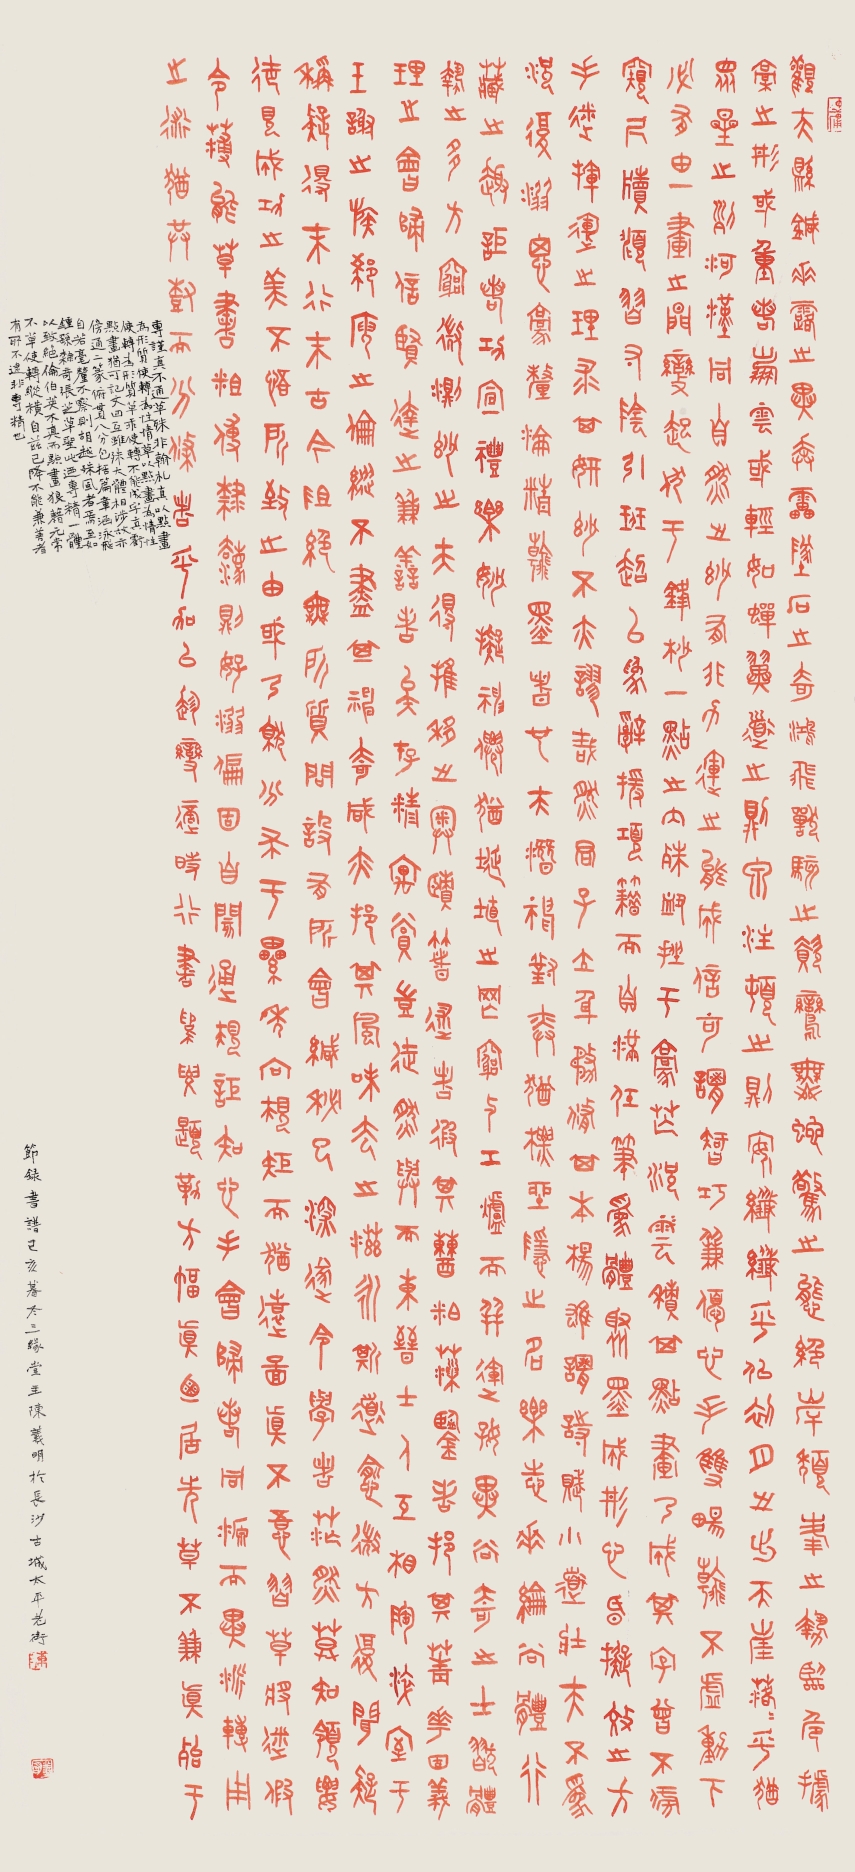 觀夫縣鍼垂露之異奔雷墜石之奇鴻飛獸駭之資鸞舞蛇驚之態絕岸頹峯之勢臨危據
槁之形或重若崩雲或輕如蟬翼導之則泉注頓之則安纖纖乎似初月之出天崖落落乎猶
眾星之列河漢同自然之妙有非力運之能成信可謂智巧兼優心手雙暢翰不虛動下
必有由一畫之間變起伏于鋒杪一點之內殊衄挫于豪芒況云積其點畫乃成其字曾不傍
窺尺牘俯習寸陰引班超以為辭援項籍而自滿任筆為體聚墨成形心昏擬效之方
手迷揮運之理求其妍妙不亦謬哉然君子立身務修其本楊雄謂詩賦小道壯夫不為
況復溺思豪釐淪精翰墨者也夫潛神對奕猶標坐隱之名樂志垂綸尚體行
藏之趣詎若功宣禮樂妙擬神僊猶埏埴之罔窮與工爐而並運好異尚奇之士翫體
勢之多方窮微測妙之夫得推移之奧賾著述者假其糟粕藻鑒者挹其菁華固義
理之會歸信賢達之兼善者矣存精寓賞豈徒然與而東晉士人互相陶淬室于
王謝之族郗庾之倫縱不盡其神奇咸亦挹其風味去之滋永斯道愈微方復聞疑
稱疑得末行末古今阻絕無所質問設有所會緘秘已深遂令學者茫然莫知領要
徒見成功之美不悟所致之由或乃就分布于累年向規矩而猶遠圖真不悟習草將迷假
令薄能草書粗傳隸法則好溺偏固自閡通規詎知心手會歸若同源而異派轉用
之術猶共樹而分條者乎加以趨變適時行書為要題勒方幅真乃居先草不兼真殆于
專謹真不通草殊非翰札真以點畫
為形質使轉為情性草以點畫為情性
使轉為形質草乖使轉不能成字真虧
點畫猶可記文回互雖殊大體相涉故亦
傍通二篆俯貫八分包括篇章涵泳飛
白若毫釐不察則胡越殊風者焉至如
鍾繇隸奇張芝草聖此乃專精一體
以致絕倫伯英不真而點畫狼藉元常
不草使轉縱橫自茲已降不能兼善者
有所不逮非專精也
節錄書譜己亥暮冬三緣堂主陳義明於長沙古城太平老街